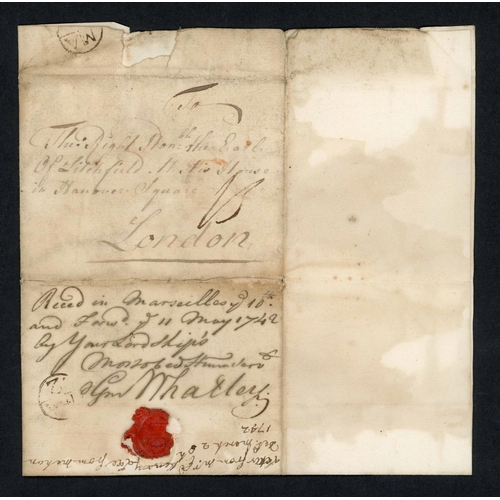 To
The Right Hon:ble the Earl
Of Litchfield At His House
in Hanover Square
London
Recd in Marseilles ye 10th
and forwd ye 11 May 1742
by Your Lordship's
Most obedt Humble servt
Whatley
1742
March 2
from